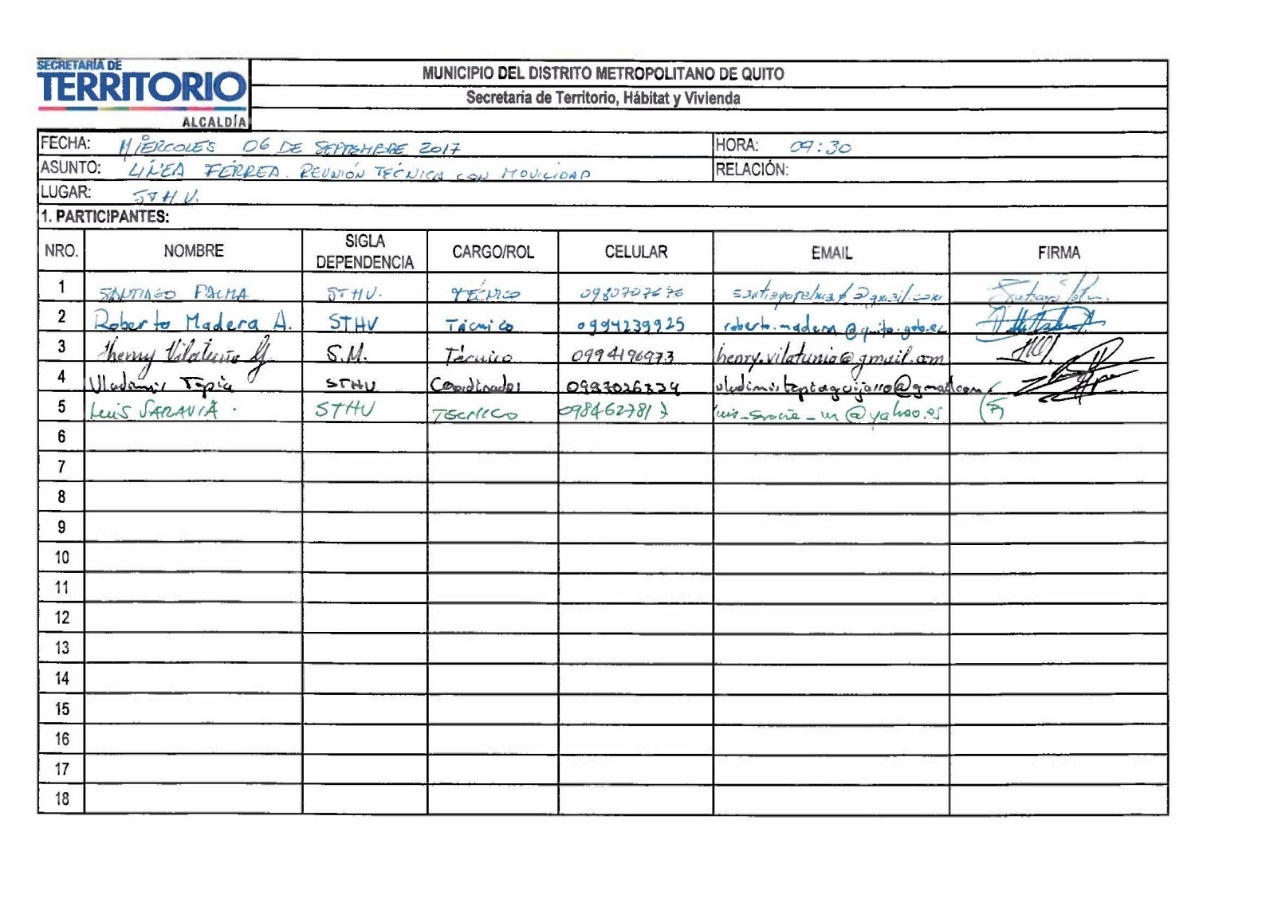 SECRETARÍA DE
TERRITORIO
ALCALDÍA
MUNICIPIO DEL DISTRITO METROPOLITANO DE QUITO
Secretaría de Territorio, Hábitat y Vivienda
FECHA: MIÉRCOLES 06 DE SEPTIEMBRE 2017 HORA: 09:30
ASUNTO: LÍNEA FÉRREA. REUNIÓN TÉCNICA CON MOVILIDAD RELACIÓN:
LUGAR: STHV.
1. PARTICIPANTES:
NRO. NOMBRE SIGLA DEPENDENCIA CARGO/ROL CELULAR EMAIL FIRMA
1 SANTIAGO PALMA STHV. TÉCNICO
2 Roberto Madera A. STHV Técnico 0994239925 roberto.madera@quito.gob.ec
3 Henry Vilatuña G S.M. Técnico 0994196973 henry.vilatunia@gmail.com
4 Vladimir Tapia STHV Coordinador
5 Luis SARAVIA. STHV TECNICO 098462781
6
7
8
9
10
11
12
13
14
15
16
17
18